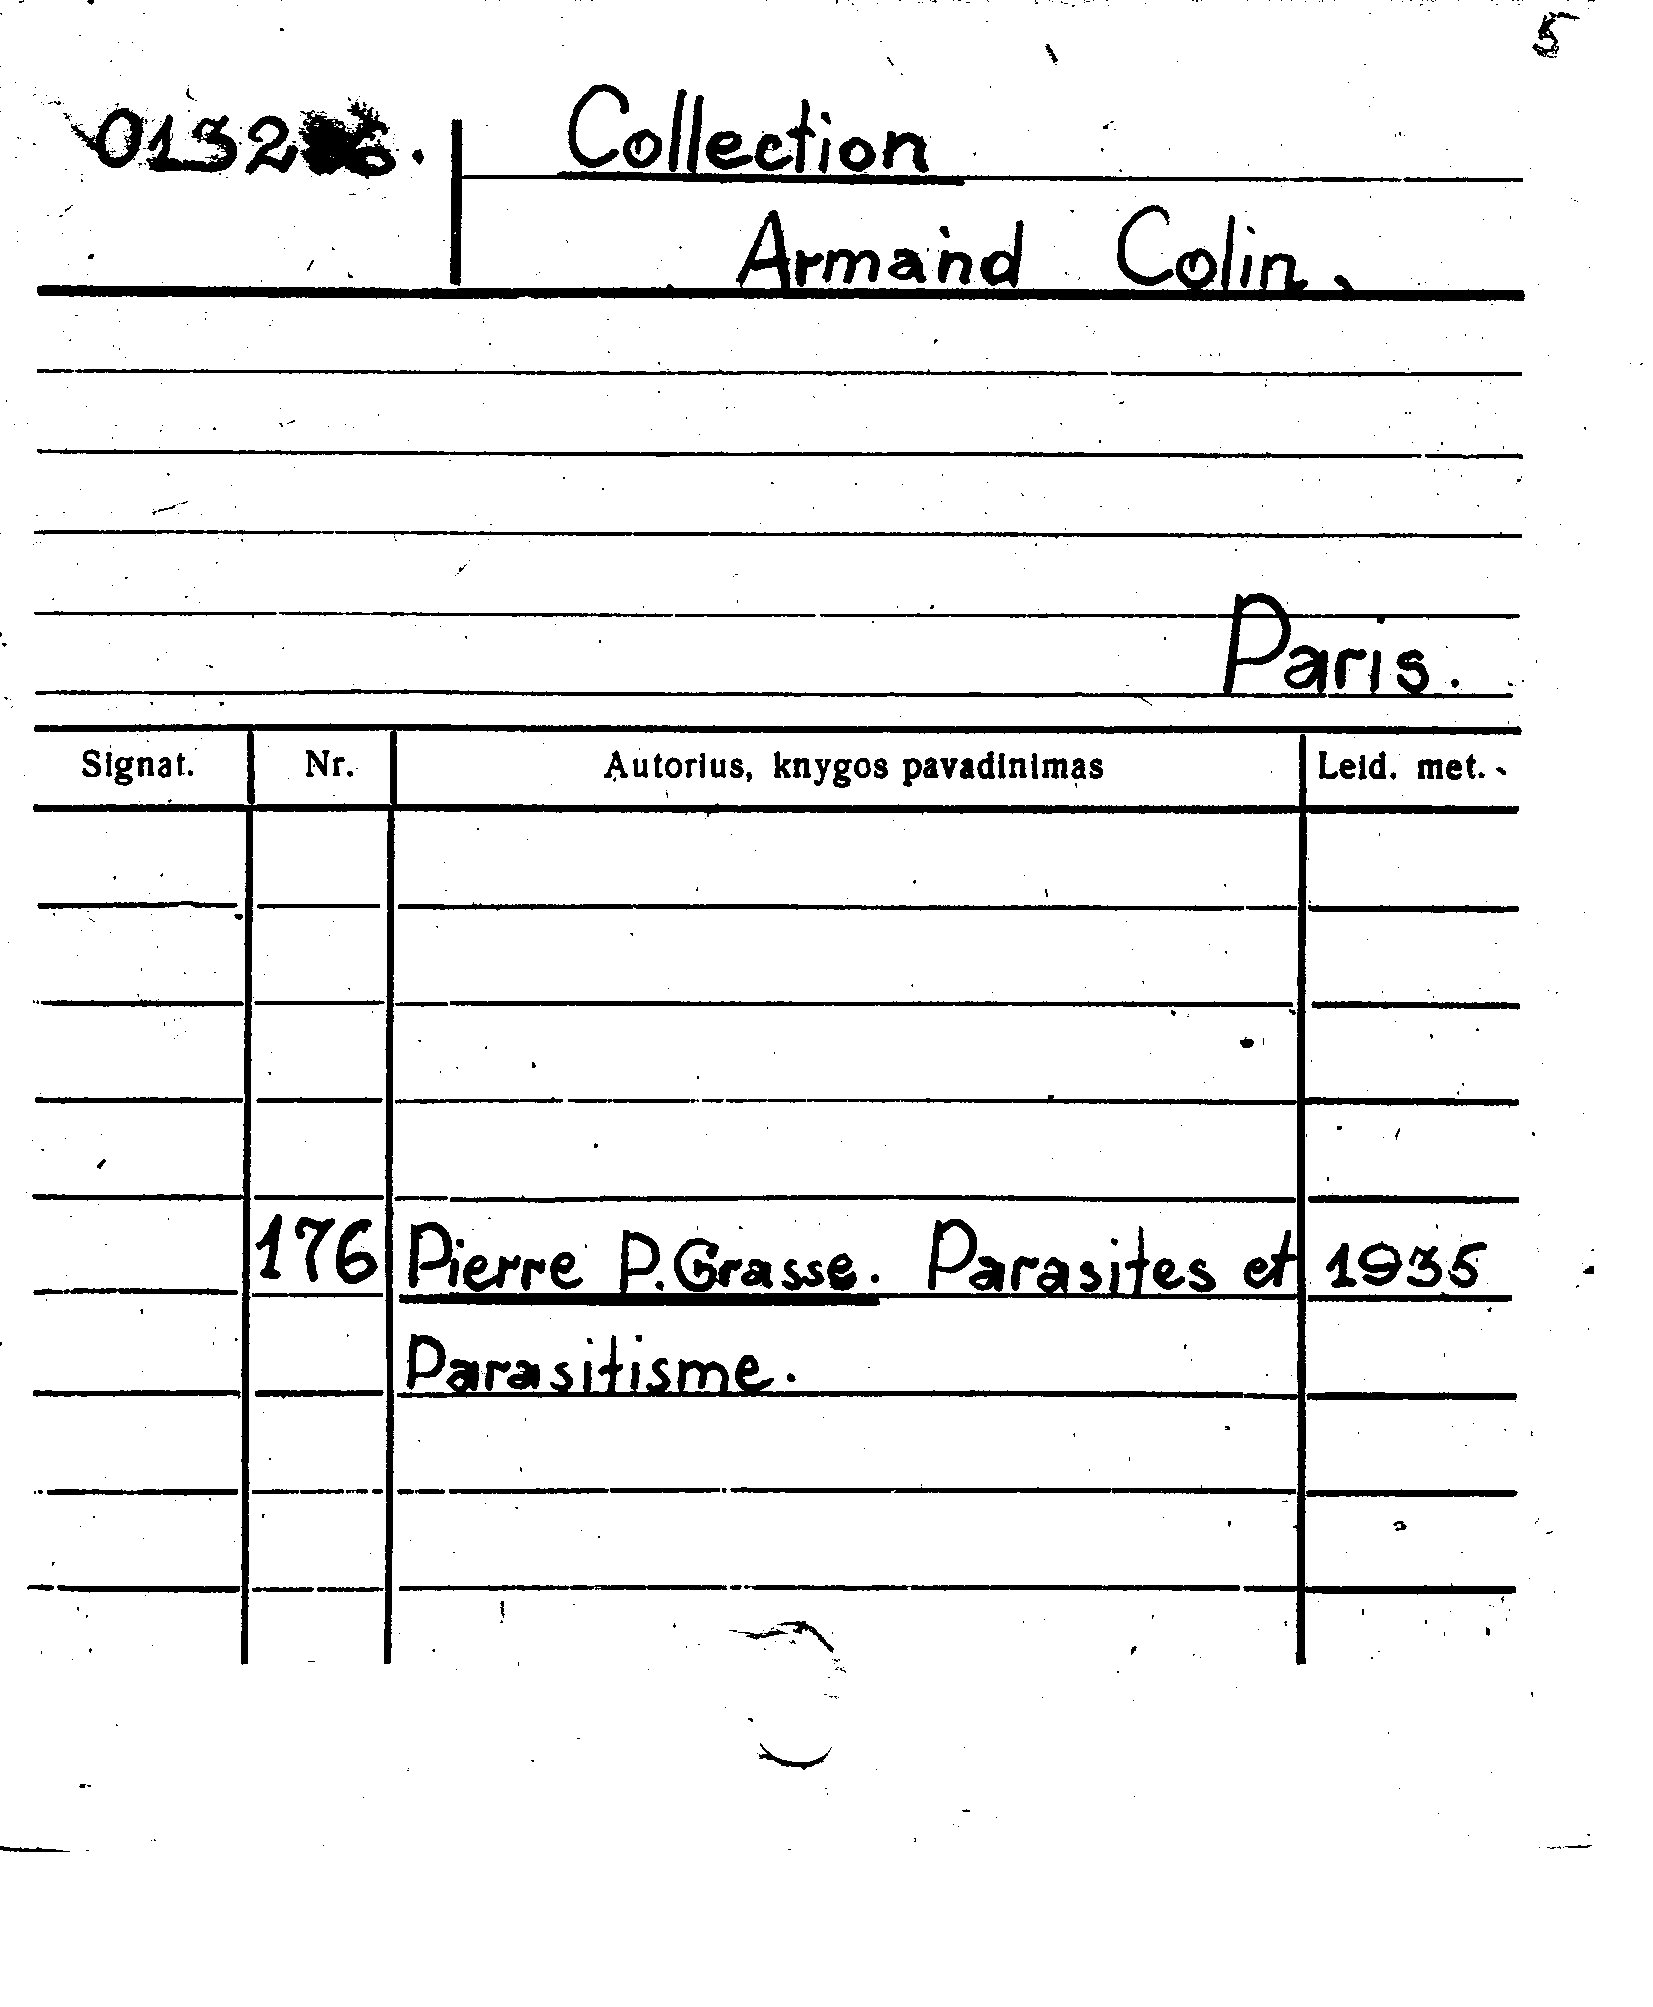 5
Collection
Armand Colin,
Paris.
Signat. Nr. Autorius, knygos pavadinimas Leid. met.
176 Pierre P. Grasse. Parasites et 1935
Parasitisme.